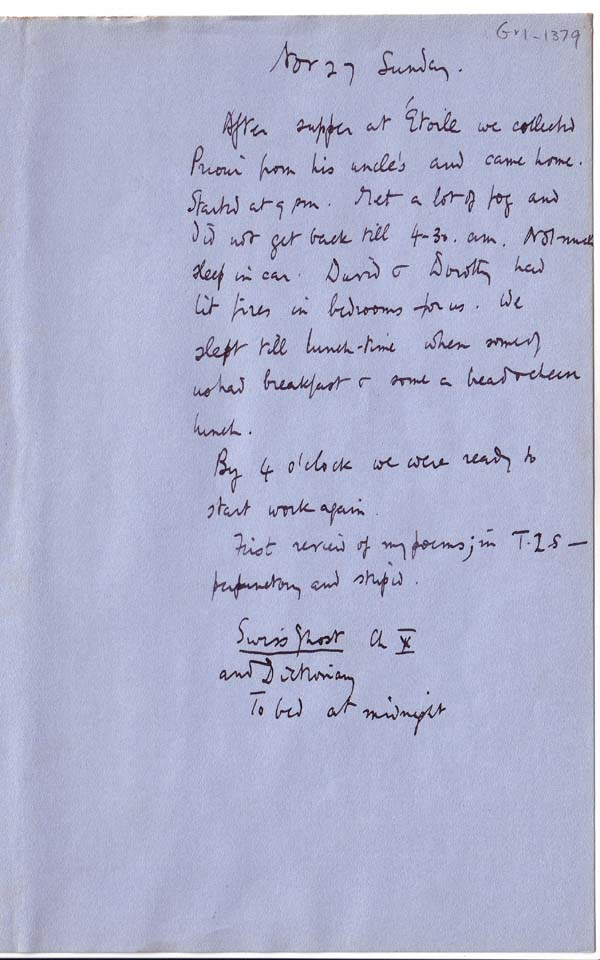 Gv1-1379
Nov 27 Sunday.
After supper at Étoile we collected
from his uncle's and came home.
Started at 9 pm. Met a lot of fog and
did not get back till 4-30. am. Not much
sleep in car. David & Dorothy had
lit fires in bedrooms for us. We
slept till lunch-time when some of
us had breakfast & some a bread & cheese
lunch.
By 4 o'clock we were ready to
start work again.
First review of my poems; in T.L.S —
perfunctory and stupid.
Swiss Ghost Ch X
and Dictionary
To bed at midnight